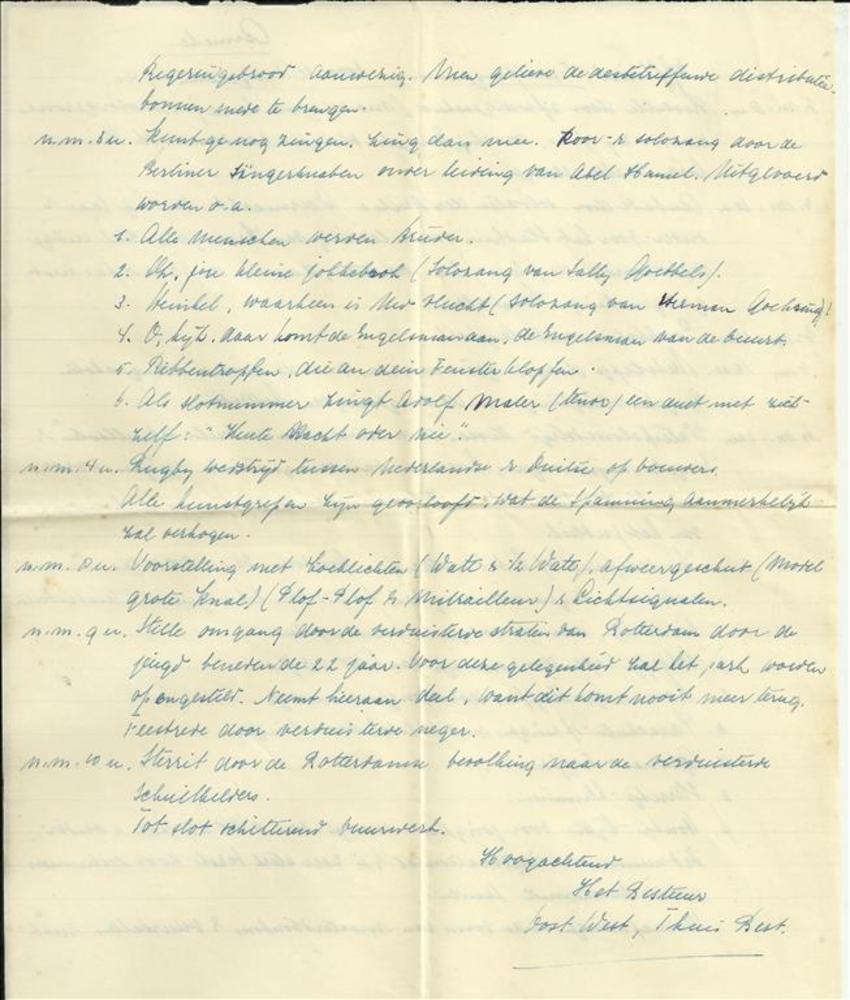 Regeringsbrood aanwezig. Men gelieve de desbetreffende distributie-
bonnen mede te brengen.
n.m. 3 u. Kunt ge nog zingen, zing dan mee. Koor- & solozang door de
Berliner Sängerknaben onder leiding van Abel Hamel. Uitgevoerd
worden o.a.
1. Alle Menschen werden Brüder.
2. Oh, jou kleine jokkebrok (Solozang van Sally Goebbels).
3. Heinkel, waarheen is Uw vlucht (solozang van Herman Goehring)!
4. O, kijk, daar komt de Engelsman aan, de Engelsman van de buurt.
5. Ribbentropfen, die an dein Fenster klopfen.
6. Als slotnummer zingt Adolf Maler (tenor) een duet met zich-
zelf: "Heute Nacht oder nie".
n.m. 4 u. Rugby wedstrijd tussen Nederlandse & Duitse opbouwers.
Alle kunstgrepen zijn geoorlooft, wat de spanning aanmerkelijk
zal verhogen.
n.m. 8 u. Voorstelling met Zoeklichten (Watt & ½ Watt), afweergeschut (Model
grote Knal) (Plof-Plof & Mitrailleur) & Lichtsignalen.
n.m. 9 u. Stille omgang door de verduisterde straten van Rotterdam door de
jeugd beneden de 22 jaar. Voor deze gelegenheid zal het park worden
opengesteld. Neemt hieraan deel, want dit komt nooit meer terug.
Feestrede door verduisterde neger.
n.m. 10 u. Sterrit door de Rotterdamse bevolking naar de verduisterde
schuilkelders.
Tot slot schitterend vuurwerk.
Hoogachtend
Het Bestuur
Oost West, Thuis Best.